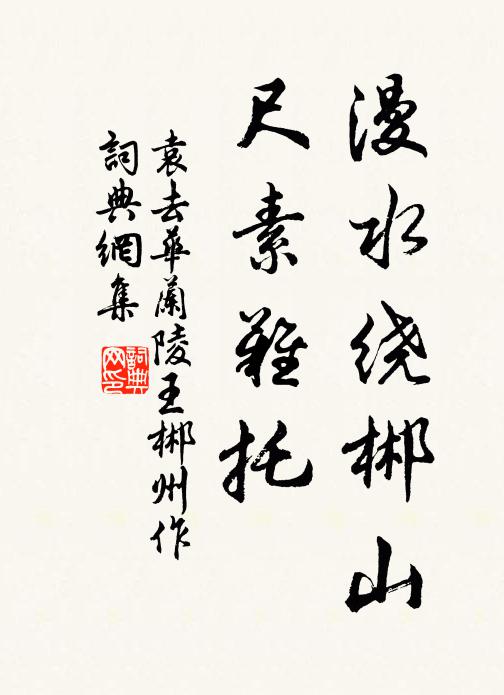 漫水绕郴山
尺素難托
袁去華蘭陵王郴州作
詞典網集
詞典
网印